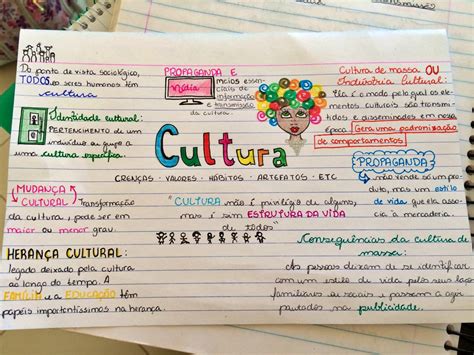 Do ponto de vista sociológico,
TODOS os seres humanos têm
cultura
Identidade cultural:
PERTENCIMENTO DE UM
indivíduo ou grupo a
uma cultura específica.
MUDANÇA
CULTURAL
Transformação
da cultura, pode ser em
maior ou menor grau.
HERANÇA CULTURAL:
legado deixado pela cultura
ao longo do tempo. A
FAMÍLIA e a EDUCAÇÃO têm
papéis importantíssimos na herança.
PROPAGANDA E
Mídia
meios essen-
ciais de
informação
e transmissão
da cultura.
Cultura
CRENÇAS · VALORES · HÁBITOS · ARTEFATOS · ETC
"CULTURA não é privilégio de alguns,
mas é sim ESTRUTURA DA VIDA
de todos"
Cultura de massa OU
Indústria Cultural:
Ela é o modo pelo qual os ele-
mentos culturais são transmi-
tidos e disseminados em nossa
época.
Gera uma padronização
de comportamentos
PROPAGANDA:
não vende só um pro-
duto, mas um estilo
de vida que ela asso-
cia à mercadoria.
Consequências da cultura de
massa:
As pessoas deixam de se identificar
com um estilo de vida pelos seus laços
familiares ou sociais e passam a agir
pautados na publicidade.